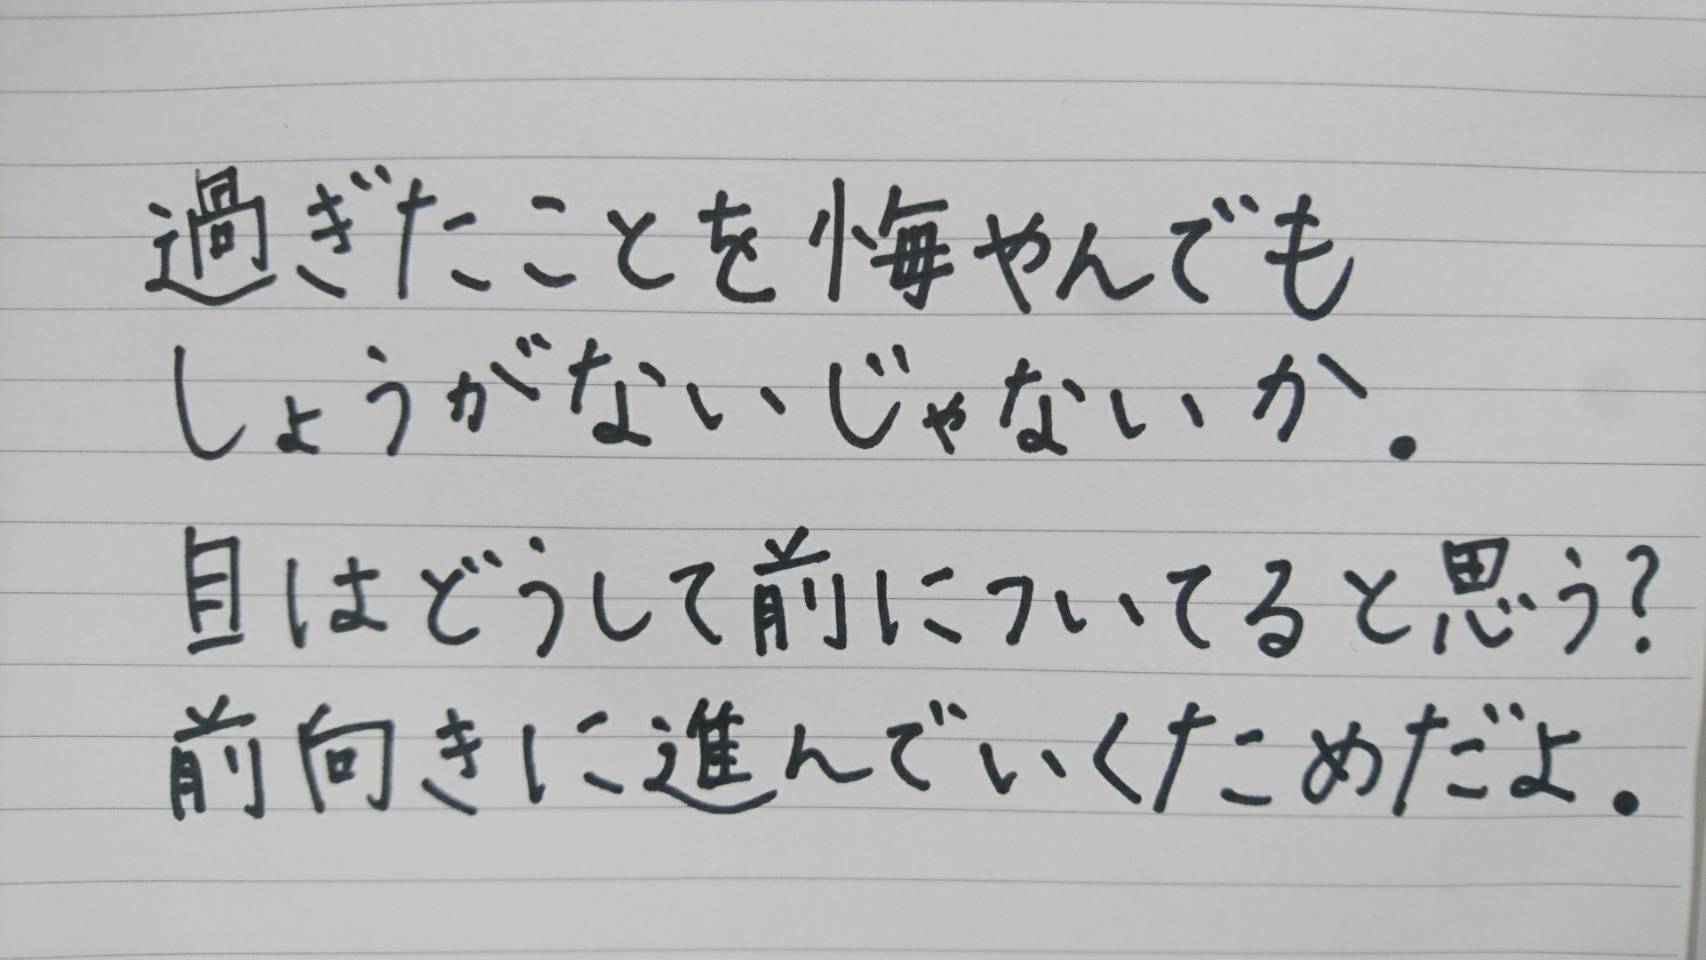 過ぎたことを悔やんでも
しょうがないじゃないか.
目はどうして前についてると思う?
前向きに進んでいくためだよ.